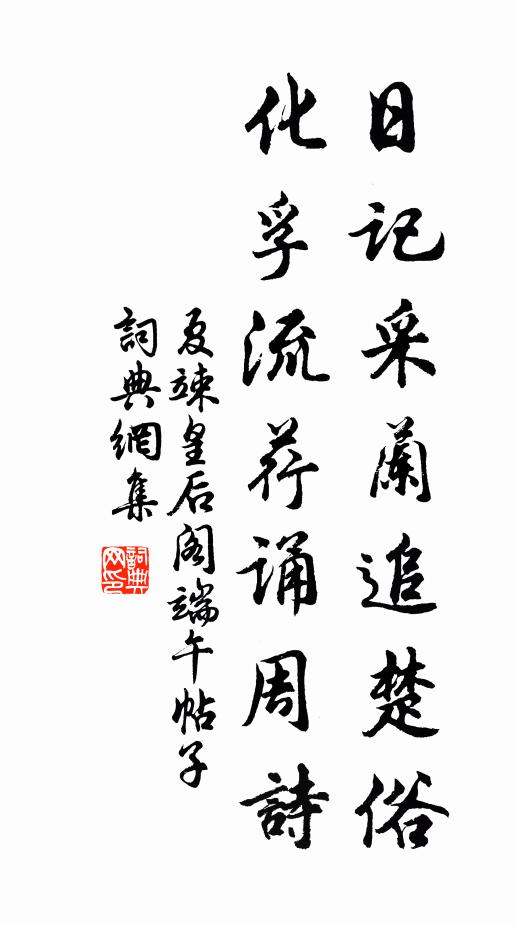 日記采蘭追楚俗
化孚流荇誦周詩
夏竦皇后阁端午帖子
詞典網集
詞典网印